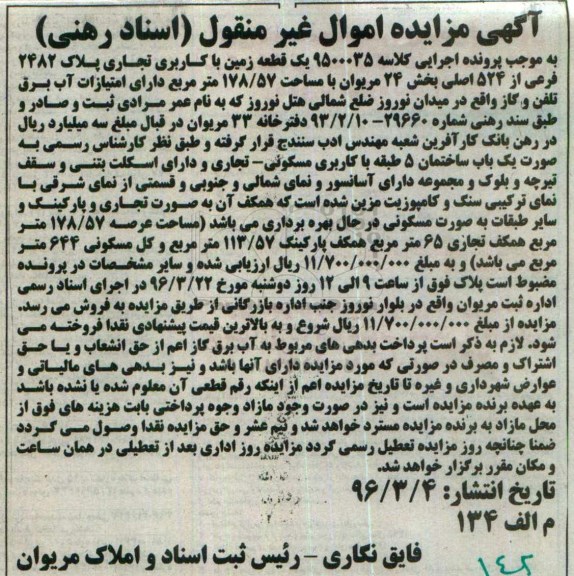 آگهی مزایده اموال غیر منقول (اسناد رهنی)
به موجب پرونده اجرایی کلاسه ۹۵۰۰۰۳۵ یک قطعه زمین با کاربری تجاری پلاک ۲۴۸۲
فرعی از ۵۲۴ اصلی بخش ۲۴ مریوان با مساحت ۱۷۸/۵۷ متر مربع دارای امتیازات آب برق
تلفن و گاز واقع در میدان نوروز ضلع شمالی هتل نوروز که به نام عمر مرادی ثبت و صادر و
طبق سند رهنی شماره ۲۹۶۶۰-۹۳/۲/۱۰ دفترخانه ۳۳ مریوان در قبال مبلغ سه میلیارد ریال
در رهن بانک کارآفرین شعبه مهندس ادب سنندج قرار گرفته و طبق نظر کارشناس رسمی به
صورت یک باب ساختمان ۵ طبقه با کاربری مسکونی- تجاری و دارای اسکلت بتنی و سقف
تیرچه و بلوک و مجموعه دارای آسانسور و نمای شمالی و جنوبی و قسمتی از نمای شرقی با
نمای ترکیبی سنگ و کامپوزیت مزین شده است که همکف آن به صورت تجاری و پارکینگ و
سایر طبقات به صورت مسکونی در حال بهره برداری می باشد (مساحت عرصه ۱۷۸/۵۷ متر
مربع همکف تجاری ۶۵ متر مربع همکف پارکینگ ۱۱۳/۵۷ متر مربع و کل مسکونی ۶۴۴ متر
مربع می باشد) و به مبلغ ۱۱/۷۰۰/۰۰۰/۰۰۰ ریال ارزیابی شده و سایر مشخصات در پرونده
مضبوط است پلاک فوق از ساعت ۹ الی ۱۲ روز دوشنبه مورخ ۹۶/۳/۲۲ در اجرای اسناد رسمی
اداره ثبت مریوان واقع در بلوار نوروز جنب اداره بازرگانی از طریق مزایده به فروش می رسد.
مزایده از مبلغ ۱۱/۷۰۰/۰۰۰/۰۰۰ ریال شروع و به بالاترین قیمت پیشنهادی نقدا فروخته می
شود. لازم به ذکر است پرداخت بدهی های مربوط به آب برق گاز اعم از حق انشعاب و یا حق
اشتراک و مصرف در صورتی که مورد مزایده دارای آنها باشد و نیز بدهی های مالیاتی و
عوارض شهرداری و غیره تا تاریخ مزایده اعم از اینکه رقم قطعی آن معلوم شده یا نشده باشد
به عهده برنده مزایده است و نیز در صورت وجود مازاد وجوه پرداختی بابت هزینه های فوق از
محل مازاد به برنده مزایده مسترد خواهد شد و نیم عشر و حق مزایده نقدا وصول می گردد
ضمنا چنانچه روز مزایده تعطیل رسمی گردد مزایده روز اداری بعد از تعطیلی در همان ساعت
و مکان مقرر برگزار خواهد شد.
تاریخ انتشار: ۹۶/۳/۴
م الف ۱۳۴
فایق نگاری - رئیس ثبت اسناد و املاک مریوان
۱۴۲